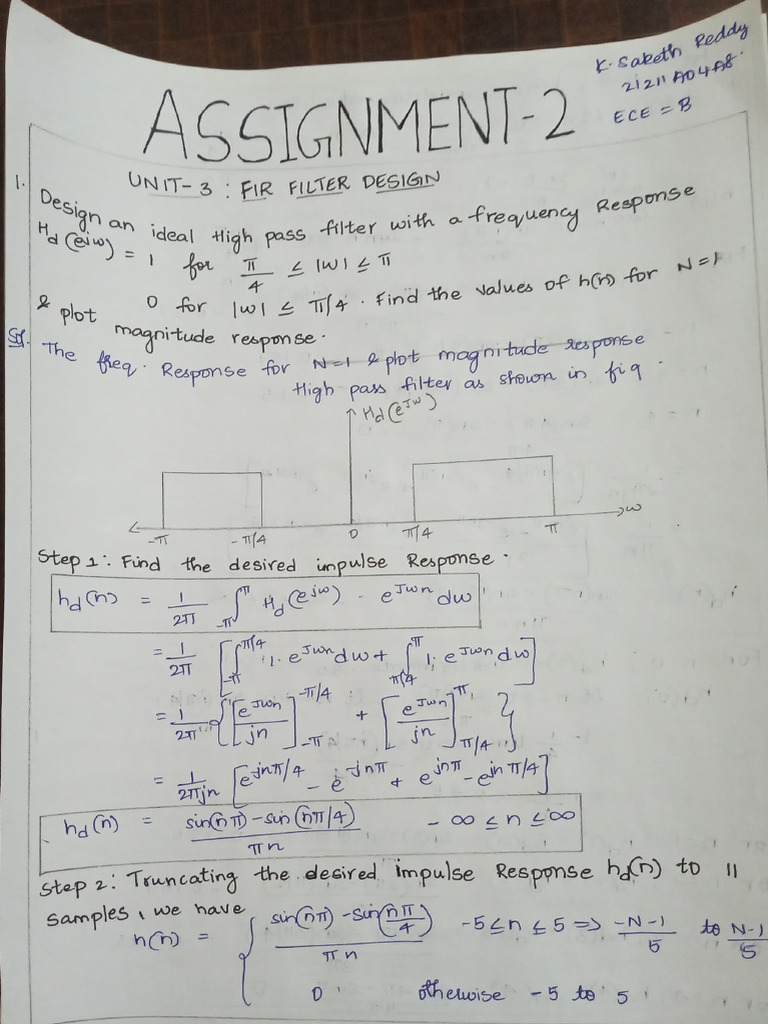 K. Saketh Reddy
21211A04A8.
ECE = B
ASSIGNMENT-2
UNIT-3 : FIR FILTER DESIGN
1. Design an ideal High pass filter with a frequency Response
Hd(ejw) = 1 for π/4 ≤ |w| ≤ π
0 for |w| ≤ π/4. Find the values of h(n) for N=1
& plot magnitude response.
Sol. The freq. Response for N=1 & plot magnitude response
High pass filter as shown in fig.
Hd(e^Jw)
-π -π/4 0 π/4 π →w
Step 1: Find the desired impulse Response.
hd(n) = 1/2π ∫_-π^π Hd(e^jw) . e^Jwn dw
= 1/2π [∫_-π^π/4 1. e^Jwn dw + ∫_π/4^π 1. e^Jwn dw]
= 1/2π {[e^Jwn/jn]_-π^-π/4 + [e^Jwn/jn]_π/4^π}
= 1/2πjn [e^-jnπ/4 - e^-jnπ + e^jnπ - e^jnπ/4]
hd(n) = sin(nπ)-sin(nπ/4)/πn - ∞ ≤ n ≤ ∞
Step 2: Truncating the desired impulse Response hd(n) to 11
samples, we have
h(n) = { sin(nπ) - sin(nπ/4)/πn -5 ≤ n ≤ 5 => -N-1/5 to N-1/5
0 otherwise -5 to 5